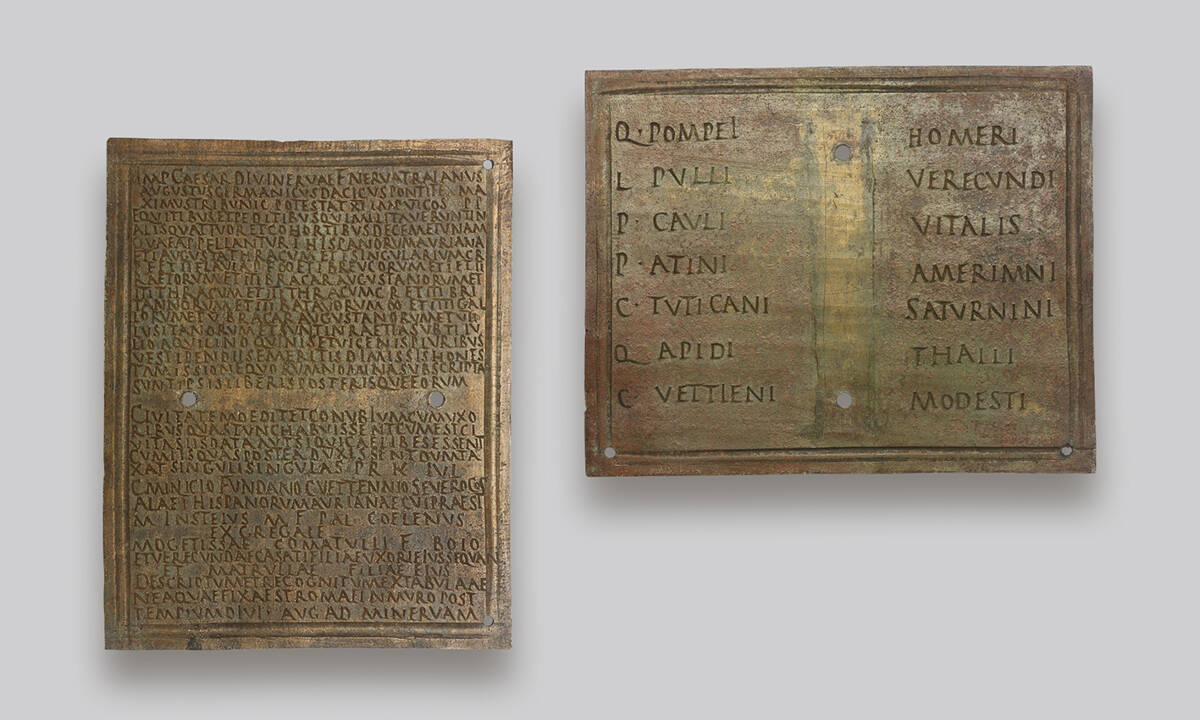 IMP CAESAR DIVI NERVAE F NERVA TRAIANVS
AVGVSTVS GERMANICVS DACICVS PONTIF MA
XIMVS TRIBVNIC POTESTAT XI IMP VI COS P P
EQVITIBVS ET PEDITIBVS QVI MILITAVERVNT IN
ALIS QVATTVOR ET COHORTIBVS DECEM ET VNA
QVAE APPELLANTVR I HISPANORVM AVRIANA
ET I AVGVSTA THRACVM ET I SINGVLARIVM C R
P F ET II FLAVIA P F ET I BREVCORVM ET I ET II
RAETORVM ET III BRACARAVGVSTANORVM ET
III THRACVM ET III THRACVM C R ET III BRI
TANNORVM ET III BATAVORVM ET IIII GAL
LORVM ET V BRACARAVGVSTANORVM ET VII
LVSITANORVM ET SVNT IN RAETIA SVB TI IV
LIO AQVILINO QVINIS ET VICENIS PLVRIBVS
VE STIPENDIIS EMERITIS DIMISSIS HONES
TA MISSIONE QVORVM NOMINA SVBSCRIPTA
SVNT IPSIS LIBERIS POSTERISQVE EORVM
CIVITATEM DEDIT ET CONVBIVM CVM VXO
RIBVS QVAS TVNC HABVISSENT CVM EST CI
VITAS IIS DATA AVT SI QVI CAELIBES ESSENT
CVM IIS QVAS POSTEA DVXISSENT DVMTA
XAT SINGVLI SINGVLAS P R K IVL
C MINICIO FVNDANO C VETTENNIO SEVERO COS
ALAE I HISPANORVM AVRIANAE CVI PRAEST
M INSTEIVS M F PAL COELENVS
EX GREGALE
MOGETISSAE COMATVLLI F BOIO
ET VERECVNDAE CASATI FILIAE VXORI EIVS SEQVAN
ET MATRVLLAE FILIAE EIVS
DESCRIPTVM ET RECOGNITVM EX TABVLA AE
NEA QVAE FIXA EST ROMAE IN MVRO POST
TEMPLVM DIVI · AVG AD MINERVAM
Q · POMPEI HOMERI
L PVLLI VERECVNDI
P · CAVLI VITALIS
P · ATINI AMERIMNI
C · TVTICANI SATVRNINI
Q APIDI THALLI
C · VETTIENI MODESTI